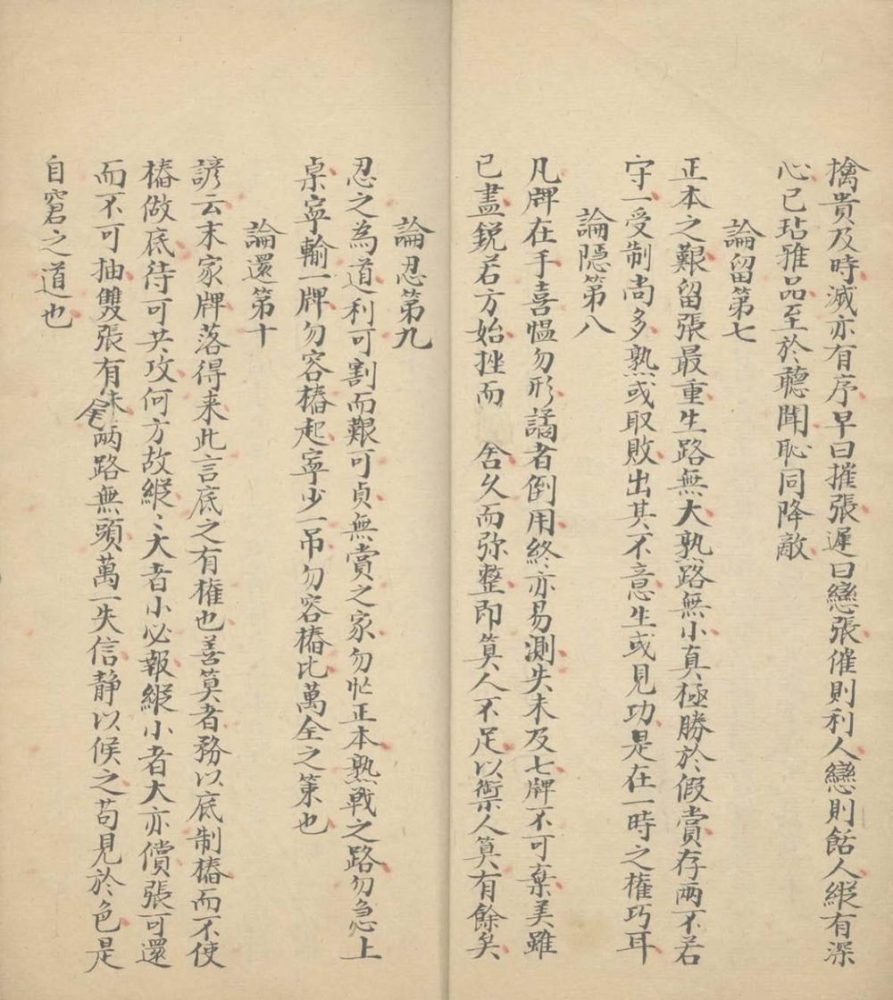 擒貴及時滅亦有序早曰摧張遲曰戀張催則利人戀則餂人縱有深
心已玷雅品至於聽聞恥同降敵
論留第七
正本之艱留張最重生路無大熟路無小真極勝於假賞存兩不若
守一受制尚多熟或取敗出其不意生或見功是在一時之權巧耳
論隱第八
凡牌在手喜愠勿形譎者倒用終亦易測失未及七牌不可棄美雖
已盡銳若方始挫而 舍久而弥整即筭人不足以禦人筭有餘矣
論忍第九
忍之為道利可割而艱可貞無賞之家勿忙正本熟戰之路勿急上
桌寜輸一牌勿容樁起寜少一吊勿容樁比萬全之策也
論還第十
諺云末家牌落得来此言底之有權也善筭者務以底制樁而不使
樁做底待可共攻何方故縱〻大者小必報縱小者大亦償張可還
而不可抽雙張有余兩路無頭萬一失信静以候之苟見於色是
自窘之道也